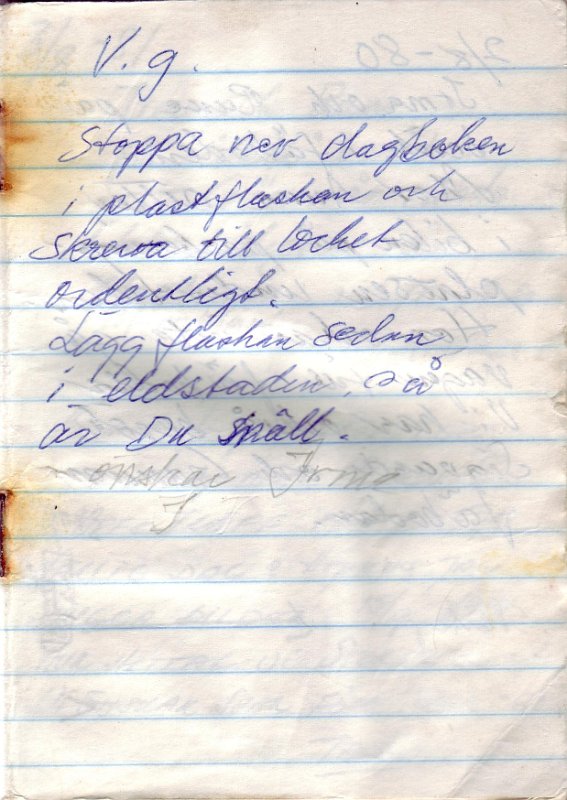 V. g.
Stoppa ner dagboken
i plastflaskan och
skruva till locket
ordentligt.
Lägg flaskan sedan
i eldstaden, så
är Du snäll.
önskar Irma